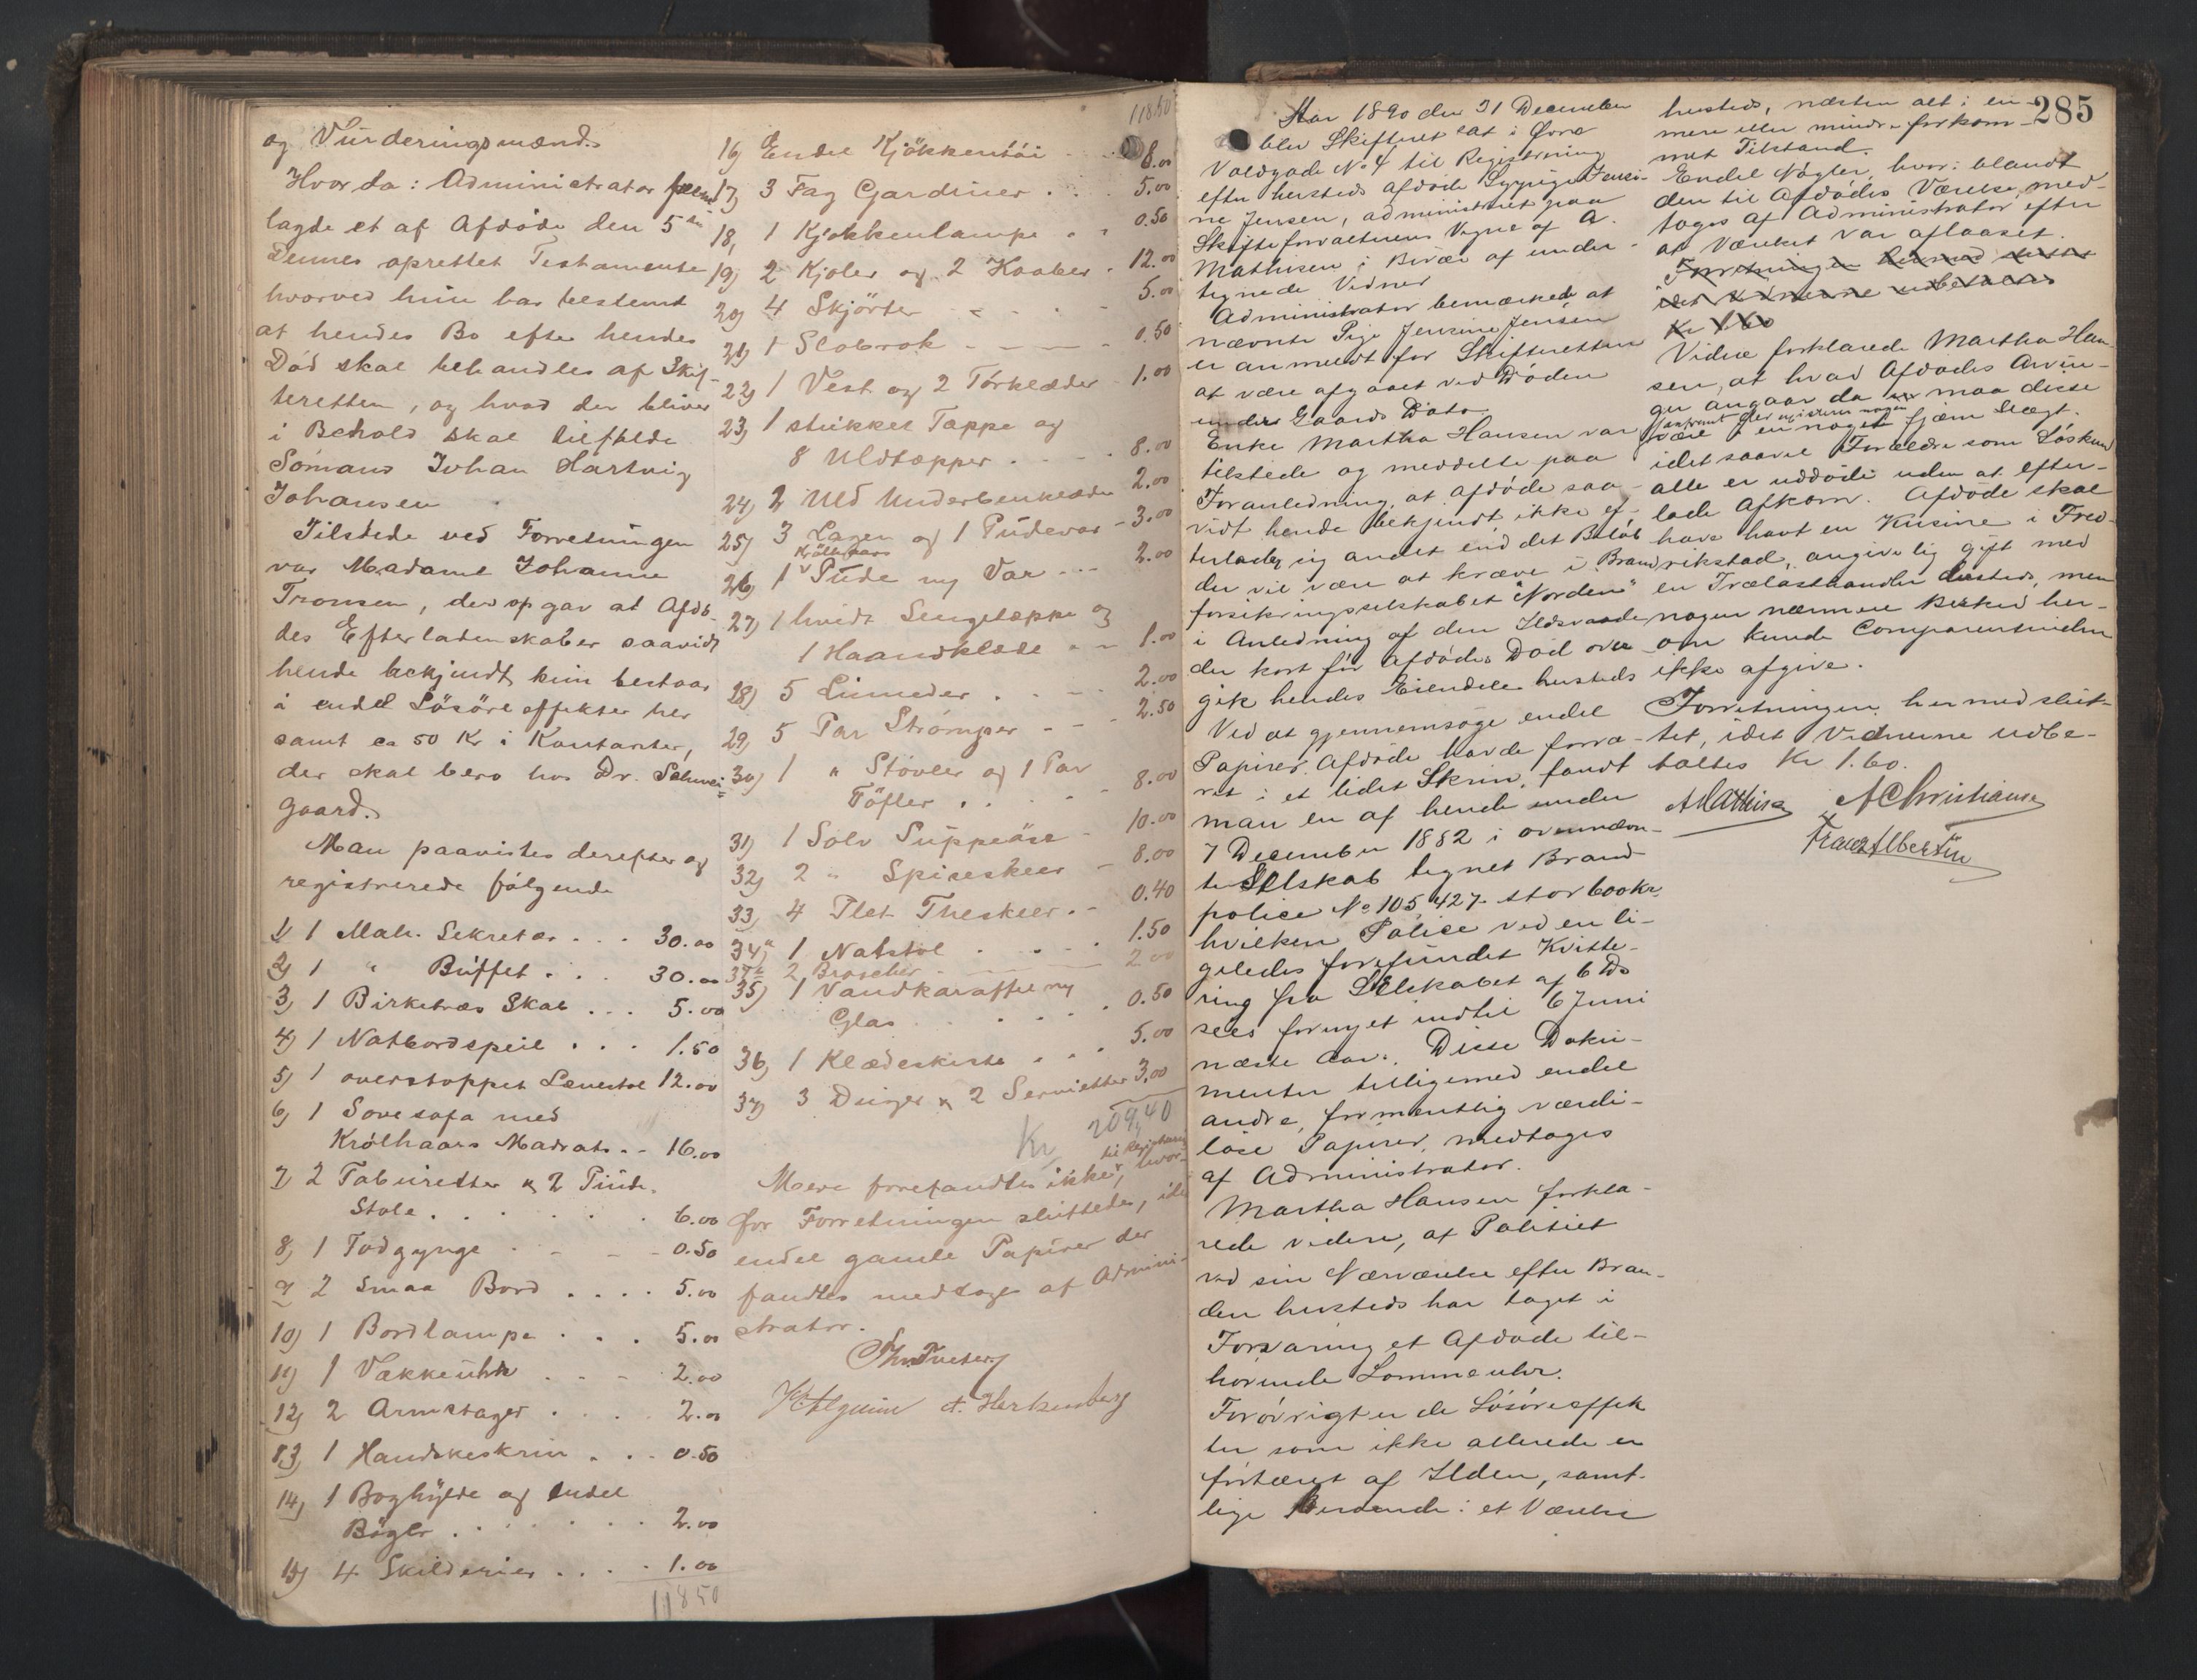 og Vurderingsmænd.
Hvorda: Administrator frem
lagde et af Afdøde den 5te
Dennes oprettet Testamente
hvorved hun har bestemt
at hendes Bo efter hendes
Død skal behandles af Skif-
teretten, og hvad der bliver
i Behold skal tilfalde
Sömand Johan Hartvig
Johansen
Tilstede ved Forretningen
var Madame Johanne
Tronsen, der opgav at Afdö-
des Efterladenskaber saavidt
hende bekjendt kun bestaar
i endel Lösöreeffekter her
samt ca 50 Kr i Kontanter,
der skal bero hos Dr. Schwei-
gaard.
Man paavistes derefter og
registrerede fölgende
1) 1 Mah. Sekretær . . . 30.00
2) 1 " Buffet . . . 30.00
3) 1 Birketræs Skab . . . 5.00
4) 1 Natbordspeil . . . 1.50
5) 1 overstoppet Lænestol 12.00
6) 1 Sovesofa med
Krølhaars Madrats . - 16.00
7) 2 Taburetter & 2 Pinde-
Stole . . . . . . 6.00
8) 1 Todgynge - - - 0.50
9) 2 Smaa Bord . . . . 5.00
10) 1 Bordlampe . . . 5.00
11) 1 Vækkeuhr . . - 2.00
12) 2 Armstager . . . . 2.00
13) 1 Handskeskrin . . . 0.50
14) 1 Boghylde og endel
Böger . . . . . . . 2.00
15) 4 Skilderier . . . . 1.00
118 50
118.50
16) Endel Kjökkentöi - . . 8.00
17) 3 Fag Gardiner . . 5.00
18) 1 Kjøkkenlampe . . 0.50
19) 2 Kjoler og 2 Kaaber . 12.00
20) 4 Skjörter - - . . - 5.00
21) 1 Slobrok - - - - 0.50
22) 1 Vest og 2 Törklæder 1.00
23) 1 stukket Tæppe og
8 Uldtæpper . . . . 8.00
24) 2 Uld Underbenklæder 2.00
25) 3 Lagen og 1 Pudevar - 3.00
Krölhaars
26) 1 Pude og Var - - - 2.00
27) 1 hvidt Sengetæppe og
1 Haandklæde - - 1.00
28) 5 Linneder . . - - 2.00
29) 5 Par Strømper - - - 2.50
30) 1 " Støvler og 1 Par
Töfler . . . . . 8.00
31) 1 Sølv Suppeöse - 10.00
32) 2 " Spiseskeer - 8.00
33) 4 Plet Theskeer . - 0.40
34a) 1 Natstol . . . . 1.50
34b 2 Broscher - - 2.00
35) 1 Vandkaraffel og
Glas . . . . . 0.50
36) 1 Klædeskiste . . . 5.00
37) 3 Duger & 2 Servietter 3.00
Kr 209,40
til Registrering
Mere forefandtes ikke, hvor-
for Forretningen sluttedes, idet
endel gamle Papirer der
fandtes medtoges af Admini-
strator.
A. Herkenberg
285
Aar 1890 den 31 December
blev Skifteret sat i Øvre
Voldgade No 4 til Registrering
efter hersteds afdøde Sypige Jensi-
ne Jensen, administreret paa
Skifteforvalterens Vegne af A.
Mathisen i Bivær af under-
tegnede Vidner
Administrator bemærkede at
nævnte Pige Jensine Jensen
er anmeldt for Skifteretten
at være afgaaet ved Döden
under Gaards Dato
Enke Martha Hansen var
tilstede og meddelte paa
Foranledning at afdøde saa-
vidt hende bekjendt ikke ef-
terlader sig andet end det Beløb
der vil være at kræve i Brand-
forsikringsselskabet "Norden"
i Anledning af den Ildsvaade
der kort før Afdødes Død over-
gik hendes Eiendele hersteds
Ved at gjennemsøge endel
Papirer Afdøde havde forva-
ret i et lidet Skrin, fandt
man en af hende under
7 December 1882 i ovennævn-
te Selskab tegnet Brand
police No 105,427 stor 600 kr,
hvilken Police ved en li-
geledes forefundet Kvitte-
ring fra Selskabet af 6 Ds
sees fornyet indtil 6 Juni
næste Aar. Disse Doku-
menter tilligemed endel
andre, formentlig værdi-
løse Papirer, medtoges
af Administrator.
Martha Hansen forkla-
rede videre, at Politiet
ved sin Nærværelse efter Bran-
den hersteds har taget i
Forvaring et Afdøde til-
hørende Lommeuhr.
Forøvrigt er de Løsøreeffek
ter som ikke allerede er
fortæret af Ilden, samt-
lige Beroende i et Værelse
hersteds, næsten alt i en
mere eller mindre forkom-
met Tilstand.
Endel Nøgler, hvor i blandt
den til Afdødes Værelse med-
toges af Administrator efter
at Værelset var aflaaset.
Forretningen hermed sluttet
idet Vidnerne udbetaltes
Kr 1.60
Videre forklarede Martha Han-
sen, at hvad Afdødes Arvin-
ger angaar da maa disse
saafremt der existerer nogen
være i en noget fjern Slægt.
idet saavel Forældre som Søskend
alle er uddøde uden at efter-
lade Afkom. Afdøde skal
have havt en Kusine i Fred-
rikstad, angivelig gift med
en Trælasthandler dersteds, men
nogen nærmere Besked her-
om kunde Comparentinden
ikke afgive.
Forretningen hermed slut-
tet, idet Vidnerne udbe-
taltes Kr 1.60.
AMathisen AChristiansen
Franz Albertin